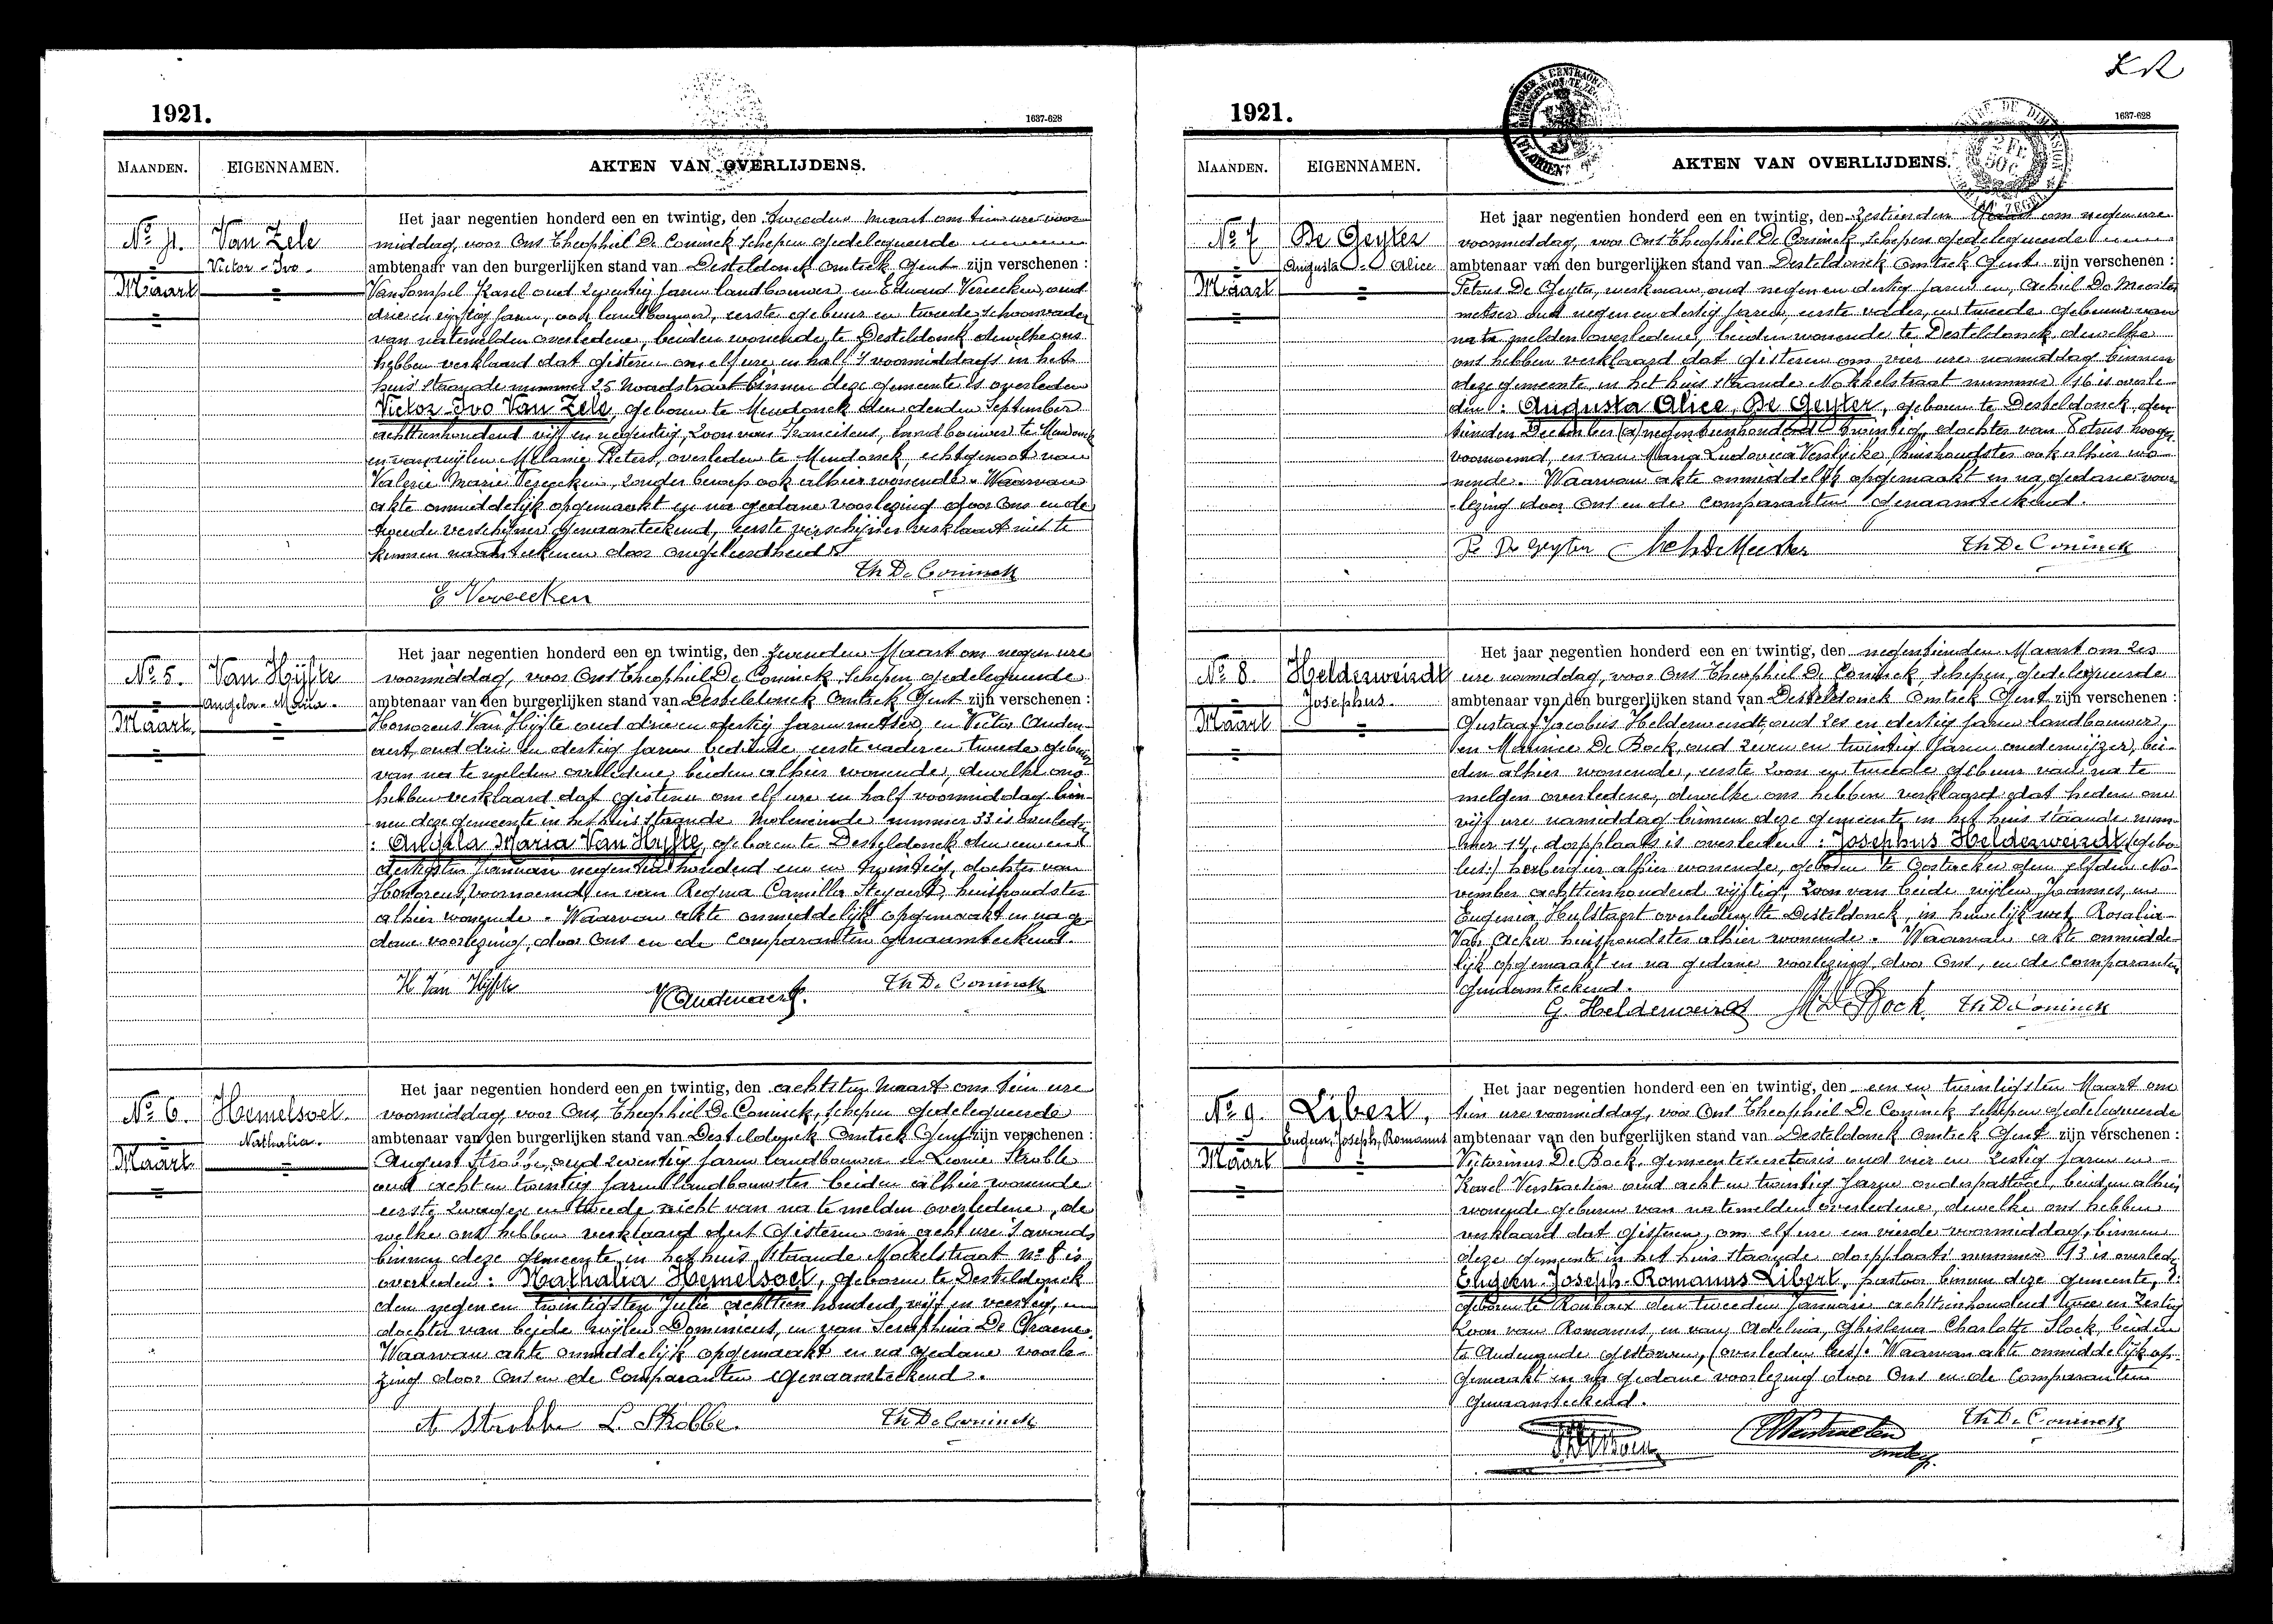 1921.
1637-628
MAANDEN.
EIGENNAMEN.
AKTEN VAN OVERLIJDENS.
No 4.
Maart
Van Zele
Victor-Ivo.
Het jaar negentien honderd een en twintig, den tweeden Maart om tien ure voor
middag, voor Ons Theophiel De Coninck Schepen gedelegueerde
ambtenaar van den burgerlijken stand van Desteldonck Omtrek Gent zijn verschenen :
Karel oud zeventig jaren landbouwer en Eduard Vereecken, oud
drie en vijftig jaren, ook landbouwer, eerste gebuur en tweede schoonvader
van natemelden overledene, beiden wonende te Desteldonck dewelke ons
hebben verklaard dat gisteren om elf ure en half 's voormiddags in het
huis staande nummer 25 Noordstraat binnen deze gemeente is overleden
Victor-Ivo Van Zele, geboren te Mendonck den derden September
achttienhonderd vijf en negentig, zoon van Franciscus, landbouwer te Mendonck
en van wijlen Melanie Pieters, overleden te Mendonck, echtgenoot van
Valerie Marie Vereecken, zonder beroep ook alhier wonende. Waarvan
akte onmiddelijk opgemaakt en na gedane voorlezing door Ons en de
tweede verschijner genaamteekend, eerste verschijner verklaart niet te
kunnen naamteekenen door ongeleerdheid
Th De Coninck
E Vereecken
No 5.
Maart
Van Hijfte
Angela-Maria.
Het jaar negentien honderd een en twintig, den zevenden Maart om negen ure
voormiddag, voor Ons Theophiel De Coninck, Schepen, gedelegueerde
ambtenaar van den burgerlijken stand van Desteldonck Omtrek Gent zijn verschenen :
Honoreus Van Hijfte oud drie en dertig jaren metser, en Victor Auden-
aert, oud drie en dertig jaren bediende, eerste vader en tweede gebuur
van na te melden overledene, beiden alhier wonende, dewelke ons
hebben verklaard dat gisteren om elf ure en half voormiddag bin-
nen deze gemeente in het huis staande Moleneinde nummer 33 is overleden
: Angela Maria Van Hijfte, geboren te Desteldonck den een en
dertigsten Januari negentien honderd een en twintig, dochter van
Honoreus, voornoemd, en van Regina Camilla Steyaert, huishoudster
alhier wonende. Waarvan akte onmiddelijk opgemaakt en na ge-
dane voorlezing, door Ons en de Comparanten genaamteekend.
H Van Hijfte
V Audenaert.
Th De Coninck
No 6.
Maart
Hemelsoet.
Nathalia.
Het jaar negentien honderd een en twintig, den achtsten Maart om tien ure
voormiddag, voor Ons, Theophiel De Coninck, Schepen gedelegueerde
ambtenaar van den burgerlijken stand van Desteldonck Omtrek Gent zijn verschenen :
August Strobbe, oud zeventig jaren landbouwer en Leonie Strobbe
oud acht en twintig jaren landbouwster beiden alhier wonende
eerste zwager en tweede nicht van na te melden overledene, de
welke ons hebben verklaard dat gisteren om acht ure 's avonds
binnen deze gemeente in het huis staande Mokelstraat no 8 is
overleden : Nathalia Hemelsoet, geboren te Desteldonck
den negen en twintigsten Julie achttien honderd vijf en veertig,
dochter van beide wijlen Dominicus, en van Seraphina De Craene.
Waarvan akte onmiddelijk opgemaakt en na gedane voorle-
zing door Ons en de Comparanten genaamteekend.
A Strobbe L. Strobbe.
Th De Coninck
1921.
1637-628
MAANDEN.
EIGENNAMEN.
AKTEN VAN OVERLIJDENS.
No 7
Maart
De Geyter
Augusta Alice
Het jaar negentien honderd een en twintig, den Zestienden Maart om negen ure
voormiddag, voor Ons Theophiel De Coninck Schepen gedelegueerde
ambtenaar van den burgerlijken stand van Desteldonck Omtrek Gent zijn verschenen :
Petrus De Geyter, werkman, oud negen en dertig jaren en, Achiel De Meester
metser oud negen en dertig jaren, eerste vader, en tweede gebuur van
na te melden overledene, beiden wonende te Desteldonck dewelke
ons hebben verklaard dat gisteren om vier ure namiddag binnen
deze gemeente in het huis staande Mokkelstraat nummer 16 is overle-
den : Augusta Alice, De Geyter, geboren te Desteldonck den
tienden December (a) negentienhonderd twintig, dochter van Petrus hooger
voornoemd, en van Maria Ludovica Verslijcke, huishoudster ook alhier wo-
nende. Waarvan akte onmiddelijk opgemaakt en na gedane voor-
lezing door Ons en de Comparanten genaamteekend.
Pe De Geyter Ach De Meester
Th De Coninck
No 8.
Maart
Helderweirdt
Josephus.
Het jaar negentien honderd een en twintig, den negentienden Maart om zes
ure namiddag, voor Ons Theophiel De Coninck Schepen, gedelegueerde
ambtenaar van den burgerlijken stand van Desteldonck Omtrek Gent zijn verschenen :
Gustaaf Jacobus Helderweirdt, oud zes en dertig jaren landbouwer,
en Maurice De Bock, oud zeven en twintig jaren onderwijzer, bei-
den alhier wonende, eerste zoon en tweede gebuur van na te
melden overledene, dewelke ons hebben verklaard dat heden om
vijf ure namiddag binnen deze gemeente in het huis staande num-
mer 14, dorpplaats is overleden : Josephus Helderweirdt
herbergier alhier wonende, geboren te Oostacker den elfden No-
vember achttienhonderd vijftig, zoon van beide wijlen Joannes, en
Eugenia Hulstaert overleden te Desteldonck, in huwelijk met Rosalia
Van Acker huishoudster alhier wonende. Waarvan akte onmidde-
lijk opgemaakt en na gedane voorlezing, door Ons, en de Comparanten
genaamteekend.
G. Helderweirdt M De Bock. Th De Coninck
No 9.
Maart
Libert,
Eugeen, Joseph, Romanus
Het jaar negentien honderd een en twintig, den een en twintigsten Maart om
tien ure voormiddag, voor Ons Theophiel De Coninck Schepen gedelegueerde
ambtenaar van den burgerlijken stand van Desteldonck Omtrek Gent zijn verschenen :
Victorinus De Bock, gemeentesecretaris oud vier en zestig jaren en
Karel Verstraeten oud acht en twintig jaren onderpastoor, beiden alhier
wonende geburen van natemelden overledene, dewelke ons hebben
verklaard dat gisteren, om elf ure en vierde voormiddag, binnen
deze gemeente in het huis staande dorpplaats nummer 13 is overleden
Eugeen-Joseph-Romanus Libert, pastoor binnen deze gemeente,
geboren te Roubaix den tweeden Januari achttienhonderd twee en zestig
zoon van Romanus, en van Adelina, Ghislena Charlotte Slock, beiden
te Audenaarde gestorven, (overleden lees). Waarvan akte onmiddelijk op-
gemaakt en na gedane voorlezing door Ons en de Comparanten
genaamteekend.
Verstraeten
onderp.
Th De Coninck